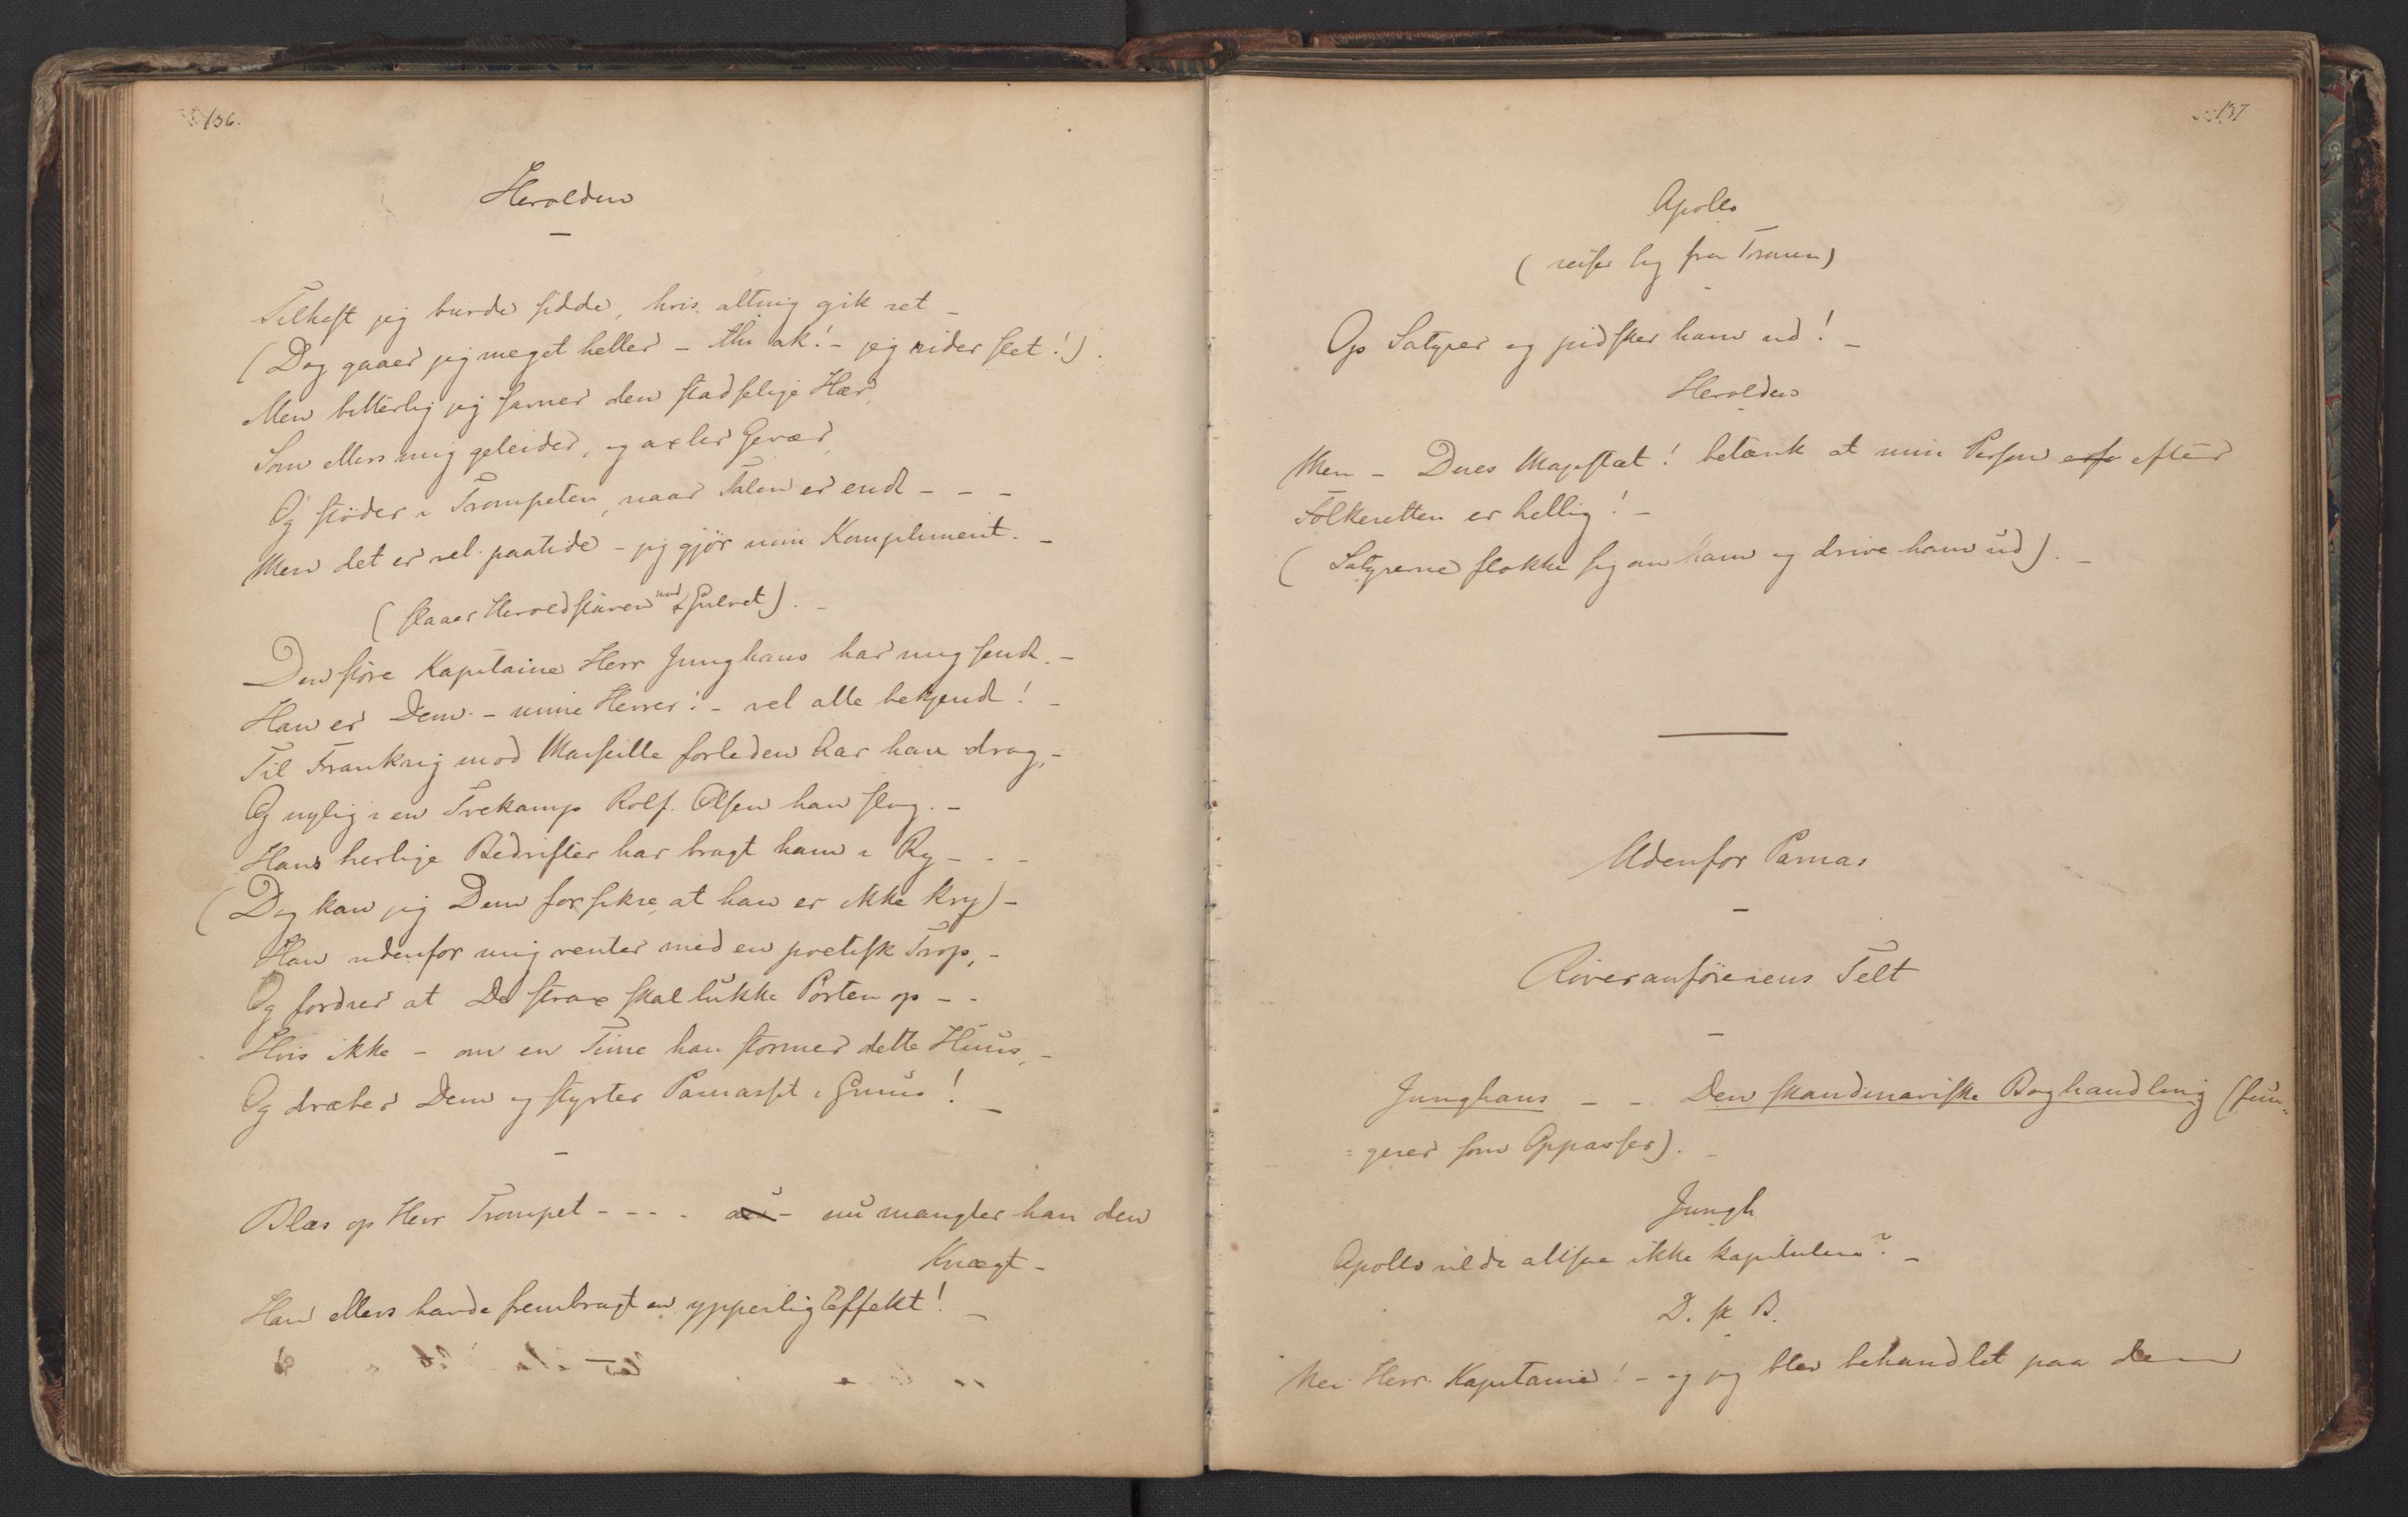 136.
Herolden
Tilhest jeg burde sidde, hvis alting gik ret –
(Dog gaaer jeg meget heller – thi ak! – jeg rider slet!).
Men bitterlig jeg savner den stadselige Hær,
Som ellers mig geleider, og axler Gevær,
Og støder i Trompeten, naar Talen er endt – – –
Men det er vel paatide – jeg gjør min Kompliment. –
(slaaer Heroldstaven mod Gulvet). –
Den store Kapitaine Herr Junghans har mig sendt. –
Han er Dem – mine Herrer! – vel alle bekjendt! –
Til Frankrig mod Marseille forleden har han drag, –
Og nylig i en Tvekamp Rolf Olsen han slog. –
Hans herlige Bedrifter har bragt ham i Ry – – –
(Dog kan jeg Dem forsikre, at han er ikke kry) –
Han udenfor mig venter med en poetisk Trop, –
Og fordrer at De strax skal lukke Porten op – –
Hvis ikke – om en Time han stormer dette Huus, –
Og dræber Dem og styrter Parnasset i Gruus! –
Blæs op Herr Trompet – – – – nu mangler han den
Knægt –
Han ellers havde frembragt en ypperlig Effekt! –
137
Apollo
(reiser sig fra Tronen)
Op Satyrer og pidsker ham ud! –
Herolden
Men – Deres Majestæt! betænk at min Person efter
Folkeretten er hellig! –
(Satyrerne flokke sig om ham og drive ham ud). –
Udenfor Parnas
Røveranførerens Telt
Junghans – – Den skandinaviske Boghandling (fun=
=gerer som Oppasser). –
Jungh
Apollo vilde altsaa ikke kapitulere? –
D. sk B.
Nei Herr Kapitaine! – og jeg blev behandlet paa den